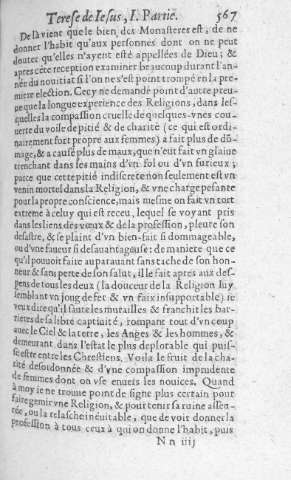 Terese de Iesus, I. Partie. 567
De là vient que le bien des Monasteres est, de ne
donner l'habit qu'aux personnes dont on ne peut
douter qu'elles n'ayent esté appellées de Dieu; &
apres cete reception examiner beaucoup durant l'an-
née du nouitiat si l'on ne s'est point trompé en la pre-
miere election. Cecy ne demande point d'autre preu-
ue que la longue experience des Religions, dans les-
quelles la compassion cruelle de quelques-vnes cou-
uerte du voile de pitié & de charité (ce qui est ordi-
nairement fort propre aux femmes) a fait plus de dõ-
mage, & a causé plus de maux, que n'eut fait vn glaiue
trenchant dans les mains d'vn fol ou d'vn furieux;
parce que cette pitié indiscrete non seulement est vn
venin mortel dans la Religion, & vne charge pesante
pour la propre conscience, mais mesme on fait vn tort
extreme à celuy qui est receu, lequel se voyant pris
dans les liens des vœux & de la profession, pleure son
desastre, & se plaint d'vn bien-fait si dommageable,
ou d'vne faueur si desauantageuse: de maniere que ce
qu'il pouuoit faire auparauant sans tache de son hon-
neur & sans perte de son salut, il le fait apres aux des-
pens de tous les deux (la douceur de la Religion luy
semblant vn joug de fer & vn faix insupportable) je
veux dire qu'il saute les murailles & franchit les bar-
rieres de sa libre captiuité, rompant tout d'vn coup
auec le Ciel & la terre, les Anges & les hommes, &
demeurant dans l'estat le plus deplorable qui puis-
se estre entre les Chrestiens. Voila le fruit de la cha-
rité desordonnée & d'vne compassion imprudente
de femmes dont on vse enuers les nouices. Quand
à moy je ne trouue point de signe plus certain pour
faire gemir vne Religion, & pour tenir sa ruine asseu-
rée, ou la relasche ineuitable, que de voir donner la
profession à tous ceux à qui on donne l'habit, puis
N n iiij